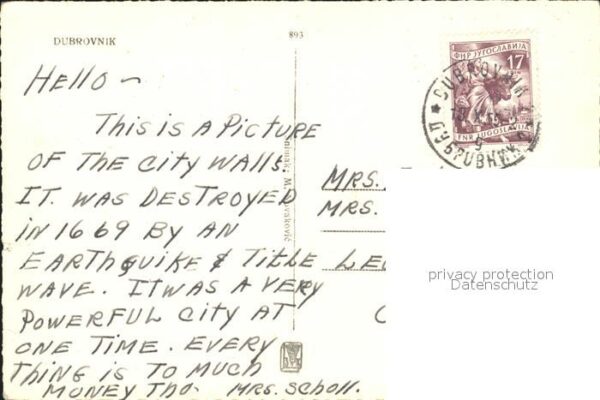 DUBROVNIK
893
HELLO ~
THIS IS A PICTURE
OF THE CITY WALLS.
IT. WAS DESTROYED
IN 1669 BY AN
EARTHQUIKE & TITLE
WAVE. IT WAS A VERY
POWERFUL CITY AT
ONE TIME. EVERY
THING IS TO MUCH
MONEY THO. MRS. SCHOLL.
MRS.
MRS.
LE
C
ФНР ЈУГОСЛАВИЈА
17
FNR JUGOSLAVIJA
DUBROVNIK
ДУБРОВНИК
privacy protection
Datenschutz